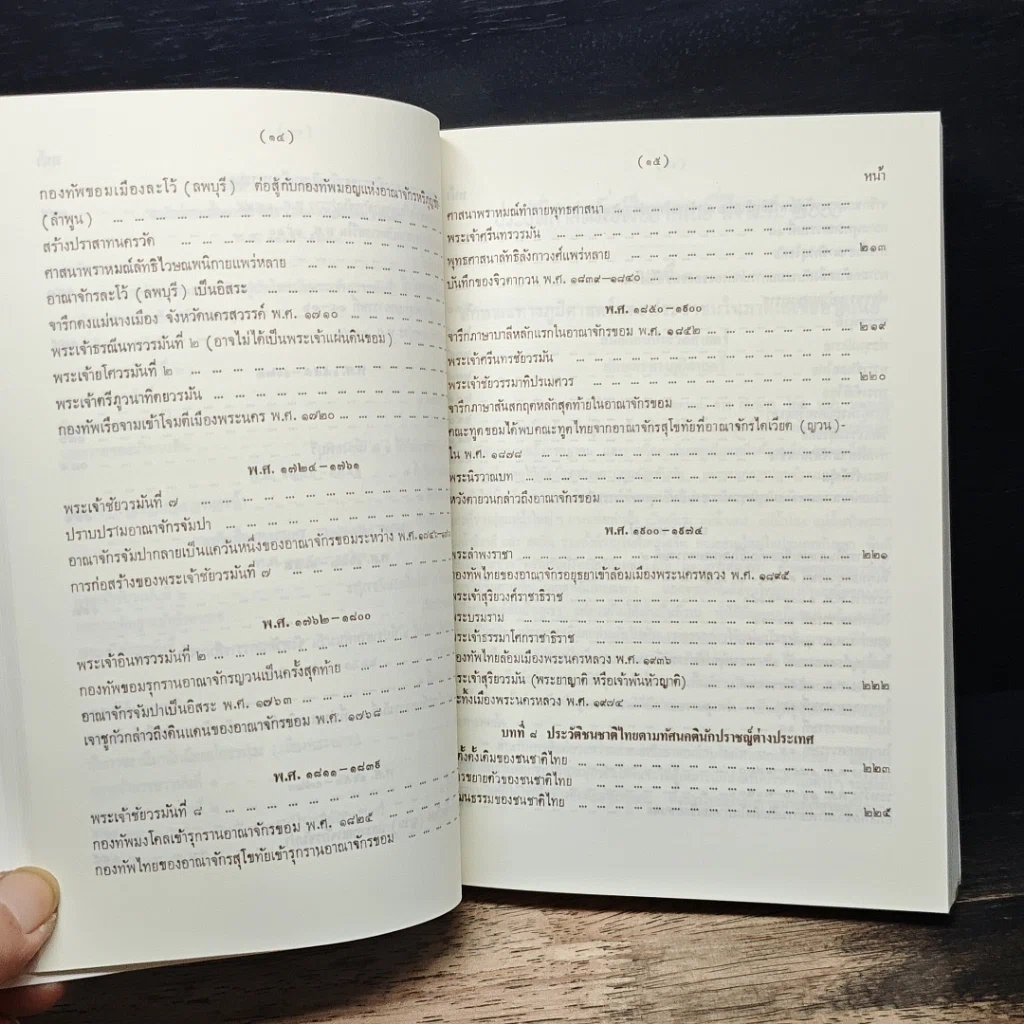 (๑๔)
กองทัพขอมเมืองละโว้ (ลพบุรี) ต่อสู้กับกองทัพมอญแห่งอาณาจักรหริภุญชัย
(ลำพูน) ... ... ... ... ... ... ... ... ... ... ... ... ...
สร้างปราสาทนครวัด ... ... ... ... ... ... ... ... ... ... ...
ศาสนาพราหมณ์ลัทธิไวษณพนิกายแพร่หลาย ... ... ... ... ... ...
อาณาจักรละโว้ (ลพบุรี) เป็นอิสระ ... ... ... ... ... ... ... ...
จารึกดงแม่นางเมือง จังหวัดนครสวรรค์ พ.ศ. ๑๗๑๐ ... ... ... ... ...
พระเจ้าธรณีนทรวรมันที่ ๒ (อาจไม่ได้เป็นพระเจ้าแผ่นดินขอม) ... ...
พระเจ้ายโศวรมันที่ ๒ ... ... ... ... ... ... ... ... ... ...
พระเจ้าตรีภูวนาทิตยวรมัน ... ... ... ... ... ... ... ... ...
กองทัพเรือจามเข้าโจมตีเมืองพระนคร พ.ศ. ๑๗๒๐ ... ... ... ... ...
พ.ศ. ๑๗๒๔–๑๗๖๑
พระเจ้าชัยวรมันที่ ๗ ... ... ... ... ... ... ... ... ... ...
ปราบปรามอาณาจักรจัมปา ... ... ... ... ... ... ... ... ...
อาณาจักรจัมปากลายเป็นแคว้นหนึ่งของอาณาจักรขอมระหว่าง พ.ศ. ๑๗๔๖–
การก่อสร้างของพระเจ้าชัยวรมันที่ ๗ ... ... ... ... ... ... ...
พ.ศ. ๑๗๖๒–๑๘๐๐
พระเจ้าอินทรวรมันที่ ๒ ... ... ... ... ... ... ... ... ...
กองทัพขอมรุกรานอาณาจักรญวนเป็นครั้งสุดท้าย ... ... ... ...
อาณาจักรจัมปาเป็นอิสระ พ.ศ. ๑๗๖๓ ... ... ... ... ... ...
เจาชูกัวกล่าวถึงดินแดนของอาณาจักรขอม พ.ศ. ๑๗๖๘ ... ... ... ...
พ.ศ. ๑๘๑๑–๑๘๓๙
พระเจ้าชัยวรมันที่ ๘ ... ... ... ... ... ... ... ... ... ...
กองทัพมงโคลเข้ารุกรานอาณาจักรขอม พ.ศ. ๑๘๒๕ ... ... ... ...
กองทัพไทยของอาณาจักรสุโขทัยเข้ารุกรานอาณาจักรขอม ... ... ...
(๑๕)
หน้า
ศาสนาพราหมณ์ทำลายพุทธศาสนา ... ... ... ... ... ... ... ...
พระเจ้าศรีนทรวรมัน ... ... ... ... ... ... ... ... ... ...
พุทธศาสนาลัทธิลังกาวงศ์แพร่หลาย ... ... ... ... ... ... ... ๒๑๓
บันทึกของจิวตากวน พ.ศ. ๑๘๓๙–๑๘๔๐ ... ... ... ... ... ...
พ.ศ. ๑๘๕๐–๑๙๐๐
จารึกภาษาบาลีหลักแรกในอาณาจักรขอม พ.ศ. ๑๘๕๒ ... ... ... ... ๒๑๙
พระเจ้าศรีนทรชัยวรมัน ... ... ... ... ... ... ... ... ...
พระเจ้าชัยวรรมาทิปรเมศวร ... ... ... ... ... ... ... ... ๒๒๐
จารึกภาษาสันสกฤตหลักสุดท้ายในอาณาจักรขอม ... ... ... ... ...
คณะทูตขอมได้พบคณะทูตไทยจากอาณาจักรสุโขทัยที่อาณาจักรไดเวียด (ญวน)-
ใน พ.ศ. ๑๘๗๘ ... ... ... ... ... ... ... ... ... ... ...
พระนิรวาณบท ... ... ... ... ... ... ... ... ... ... ...
หวังตายวนกล่าวถึงอาณาจักรขอม ... ... ... ... ... ... ... ...
พ.ศ. ๑๙๐๐–๑๙๗๔
พระลำพงราชา ... ... ... ... ... ... ... ... ... ... ... ๒๒๑
กองทัพไทยของอาณาจักรอยุธยาเข้าล้อมเมืองพระนครหลวง พ.ศ. ๑๘๙๕ ... ... ...
พระเจ้าสุริยวงศ์ราชาธิราช ... ... ... ... ... ... ... ... ...
พระบรมราม ... ... ... ... ... ... ... ... ... ... ...
พระเจ้าธรรมาโศกราชาธิราช ... ... ... ... ... ... ... ... ...
กองทัพไทยล้อมเมืองพระนครหลวง พ.ศ. ๑๙๓๖ ... ... ... ... ... ...
พระเจ้าสุริยวรมัน (พระยาญาติ หรือเจ้าพันหัวญาติ) ... ... ... ... ๒๒๒
ละทิ้งเมืองพระนครหลวง พ.ศ. ๑๙๗๔ ... ... ... ... ... ... ...
บทที่ ๘ ประวัติชนชาติไทยตามทัศนคตินักปราชญ์ต่างประเทศ
ตั้งดั้งเดิมของชนชาติไทย ... ... ... ... ... ... ... ... ... ๒๒๓
ขยายตัวของชนชาติไทย ... ... ... ... ... ... ... ... ...
ธรรมของชนชาติไทย ... ... ... ... ... ... ... ... ... ๒๒๕